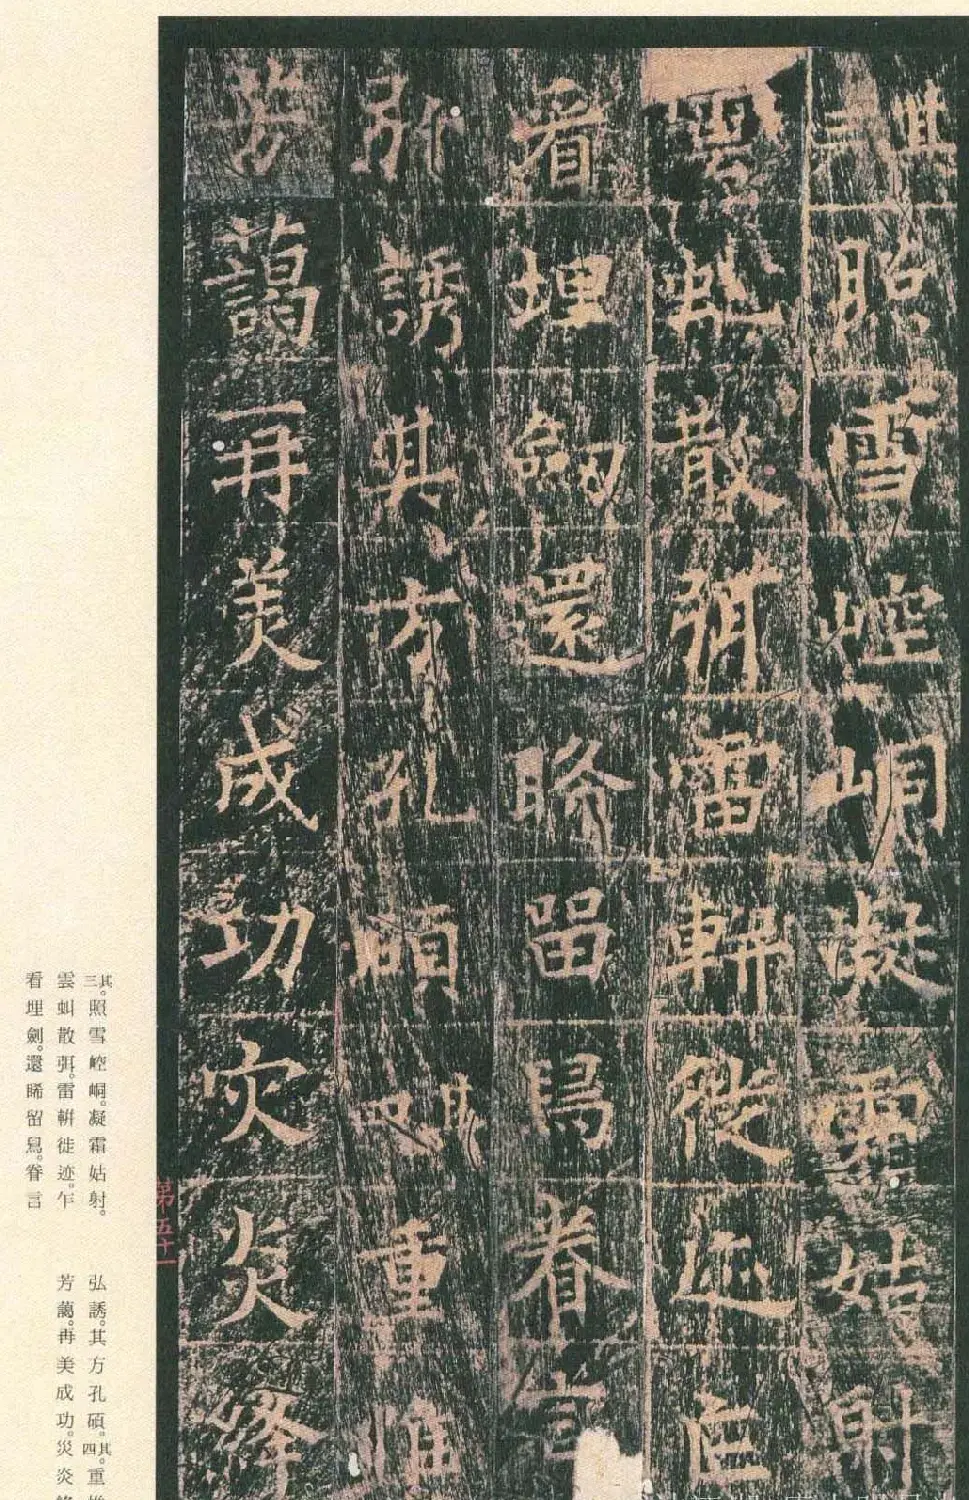 其三照雪崆峒凝霜姑射
雲虬散弭雷輧徙迹乍
看埋劍還睎留舄眷言
弘誘其方孔碩其四重惟
芳藹再美成功災炎
其三。照雪崆峒。凝霜姑射。
雲虬散弭。雷輧徙迹。乍
看埋劍。還睎留舄。眷言
弘誘。其方孔碩。其四。重
芳藹。再美成功。災炎
第五十一